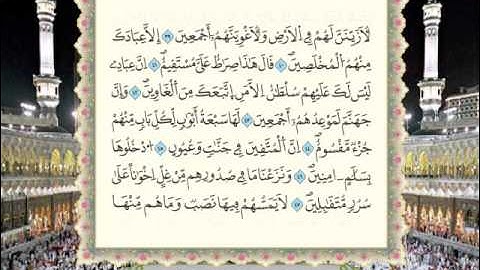 لَأُزَيِّنَنَّ لَهُمْ فِي الْأَرْضِ وَلَأُغْوِيَنَّهُمْ أَجْمَعِينَ ٣٩ إِلَّا عِبَادَكَ
مِنْهُمُ الْمُخْلَصِينَ ٤٠ قَالَ هَٰذَا صِرَٰطٌ عَلَيَّ مُسْتَقِيمٌ ٤١ إِنَّ عِبَادِي
لَيْسَ لَكَ عَلَيْهِمْ سُلْطَٰنٌ إِلَّا مَنِ اتَّبَعَكَ مِنَ الْغَاوِينَ ٤٢ وَإِنَّ
جَهَنَّمَ لَمَوْعِدُهُمْ أَجْمَعِينَ ٤٣ لَهَا سَبْعَةُ أَبْوَٰبٍ لِكُلِّ بَابٍ مِنْهُمْ
جُزْءٌ مَقْسُومٌ ٤٤ إِنَّ الْمُتَّقِينَ فِي جَنَّٰتٍ وَعُيُونٍ ٤٥ ادْخُلُوهَا
بِسَلَٰمٍ ءَامِنِينَ ٤٦ وَنَزَعْنَا مَا فِي صُدُورِهِمْ مِنْ غِلٍّ إِخْوَٰنًا عَلَىٰ
سُرُرٍ مُتَقَٰبِلِينَ ٤٧ لَا يَمَسُّهُمْ فِيهَا نَصَبٌ وَمَا هُمْ مِنْهَا